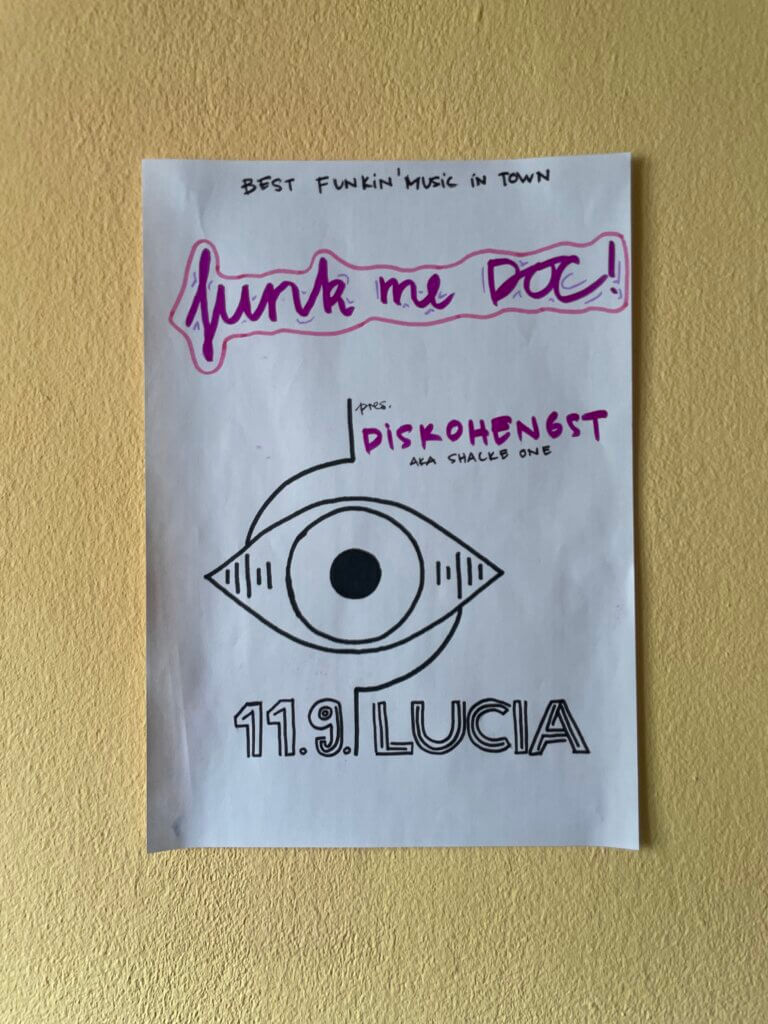 BEST FUNKIN' MUSIC IN TOWN
funk me DOC!
pres.
DiSKOHENGST
AKA SHACKE ONE
11.9. LUCIA